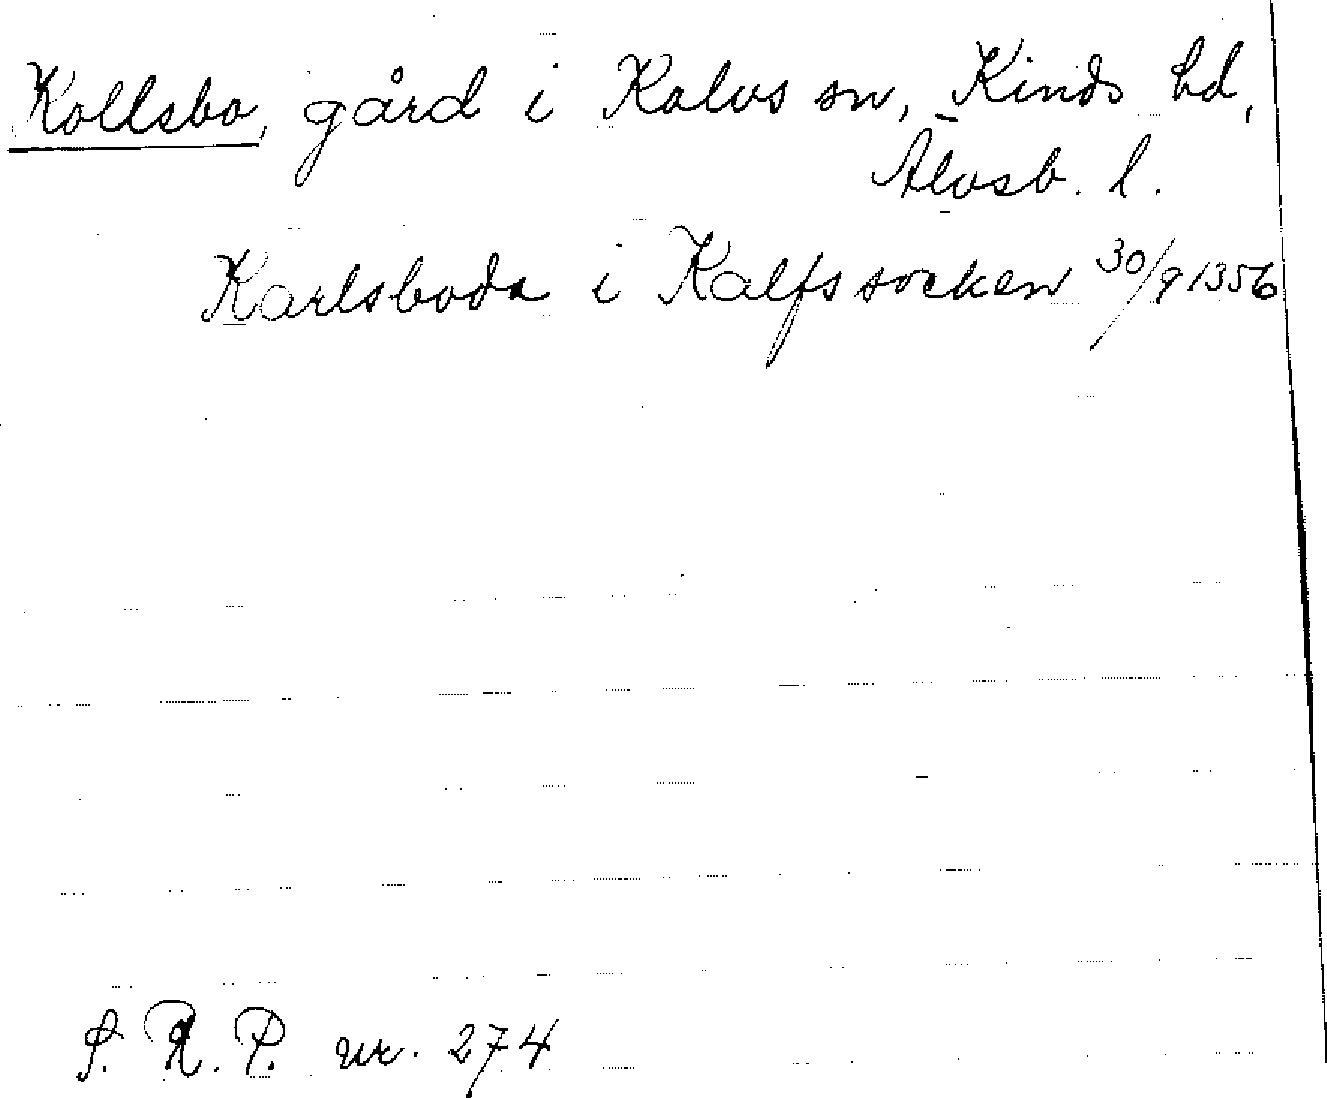 Kollsbo, gård i Kalvs sn, Kinds hd,
Älvsb. l.
Karlsboda i Kalfssocken 30/9 1356
S. R. P. nr. 274